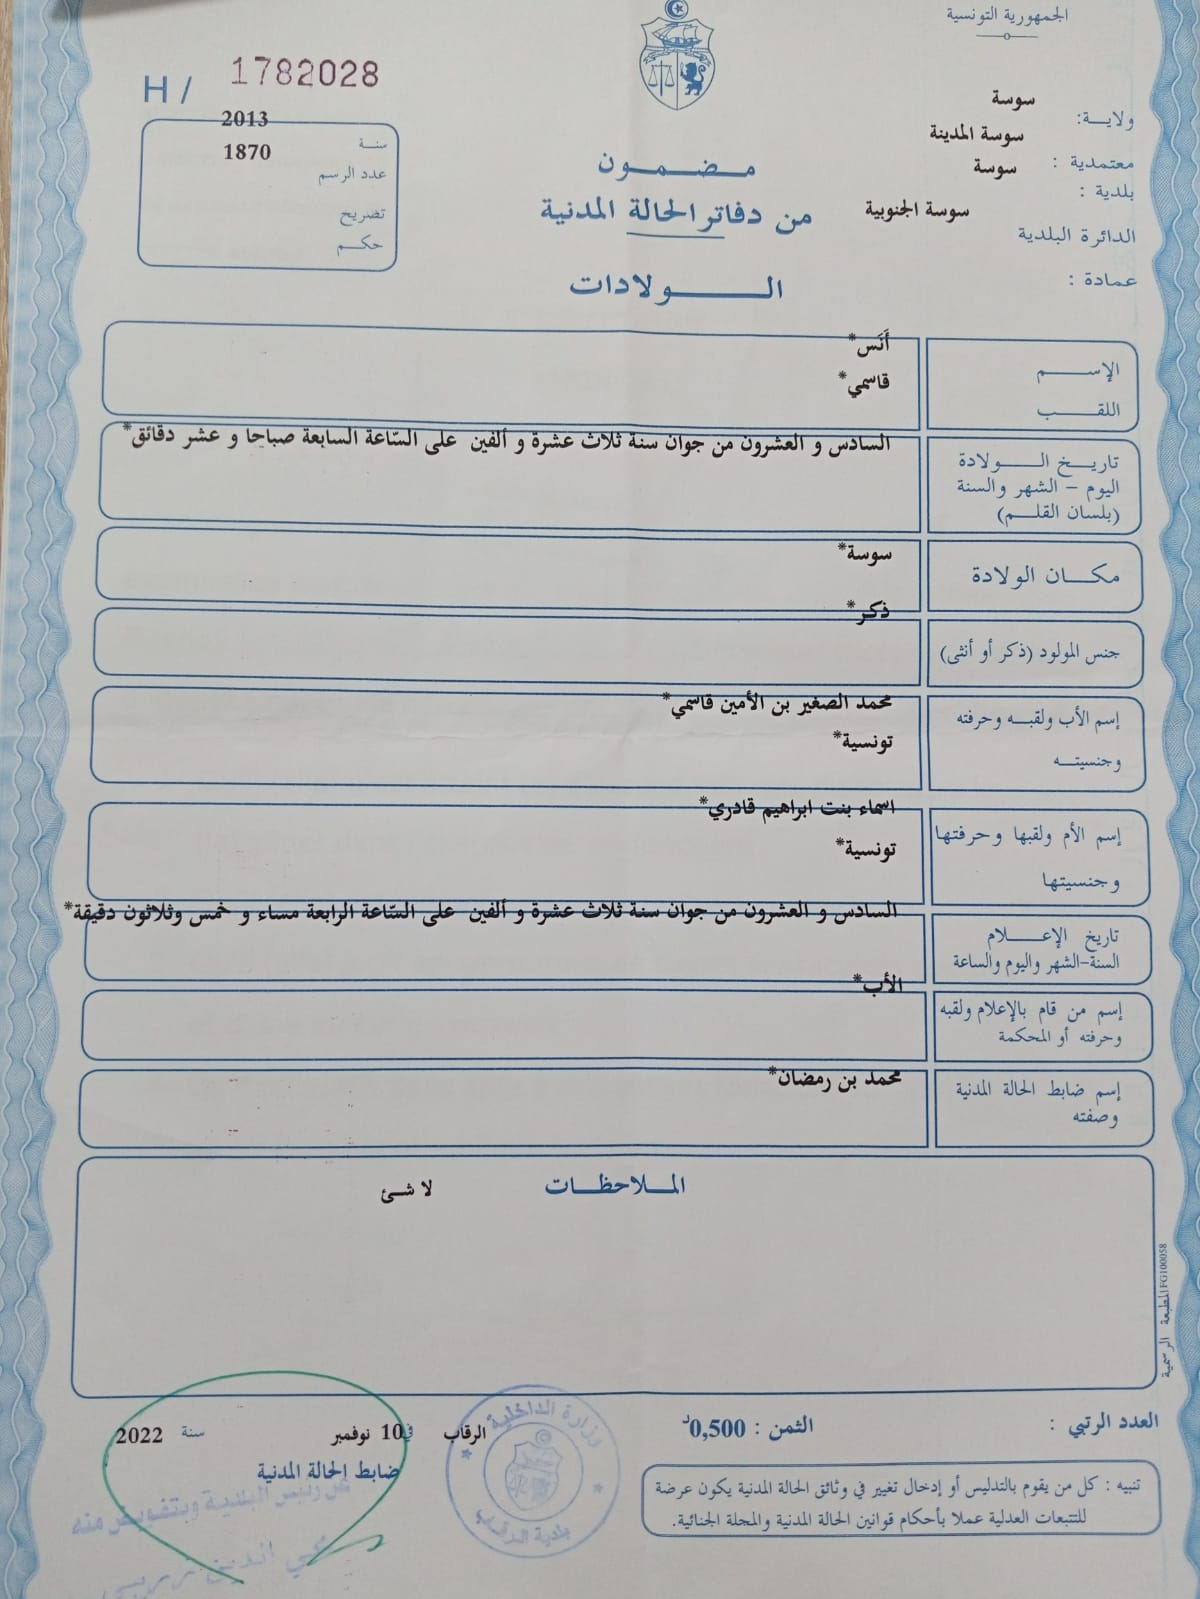 الجمهورية التونسية
H / 1782028
ولايــة: سوسة
معتمدية : سوسة المدينة
بلدية : سوسة
الدائرة البلدية سوسة الجنوبية
عمادة :
سنة 2013
عدد الرسم 1870
تضريح
حكم
مضمون
من دفاتر الحالة المدنية
الولادات
الإسم أَنَس*
اللقب قاسمي*
تاريخ الولادة
اليوم – الشهر والسنة
(بلسان القلم)
السادس و العشرون من جوان سنة ثلاث عشرة و ألفين على السّاعة السابعة صباحا و عشر دقائق*
مكان الولادة سوسة*
جنس المولود (ذكر أو أنثى) ذكر*
إسم الأب ولقبه وحرفته محمد الصغير بن الأمين قاسمي*
وجنسيته تونسية*
إسم الأم ولقبها وحرفتها اسماء بنت ابراهيم قادري*
وجنسيتها تونسية*
تاريخ الإعلام
السنة-الشهر واليوم والساعة
السادس و العشرون من جوان سنة ثلاث عشرة و ألفين على السّاعة الرابعة مساء و خمس وثلاثون دقيقة*
إسم من قام بالإعلام ولقبه
وحرفته أو المحكمة
الأب*
إسم ضابط الحالة المدنية
وصفته
محمد بن رمضان*
الملاحظات
لا شئ
المطبعة الرسمية IFG100058
العدد الرتبي :
الثمن : 0,500د
الرقاب في 10 نوفمبر سنة 2022
ضابط الحالة المدنية
عن رئيس البلدية وبتفويض منه
محي الدين
وزارة الداخلية
بلدية الرقاب
تنبيه : كل من يقوم بالتدليس أو إدخال تغيير في وثائق الحالة المدنية يكون عرضة
للتتبعات العدلية عملا بأحكام قوانين الحالة المدنية والمجلة الجنائية.